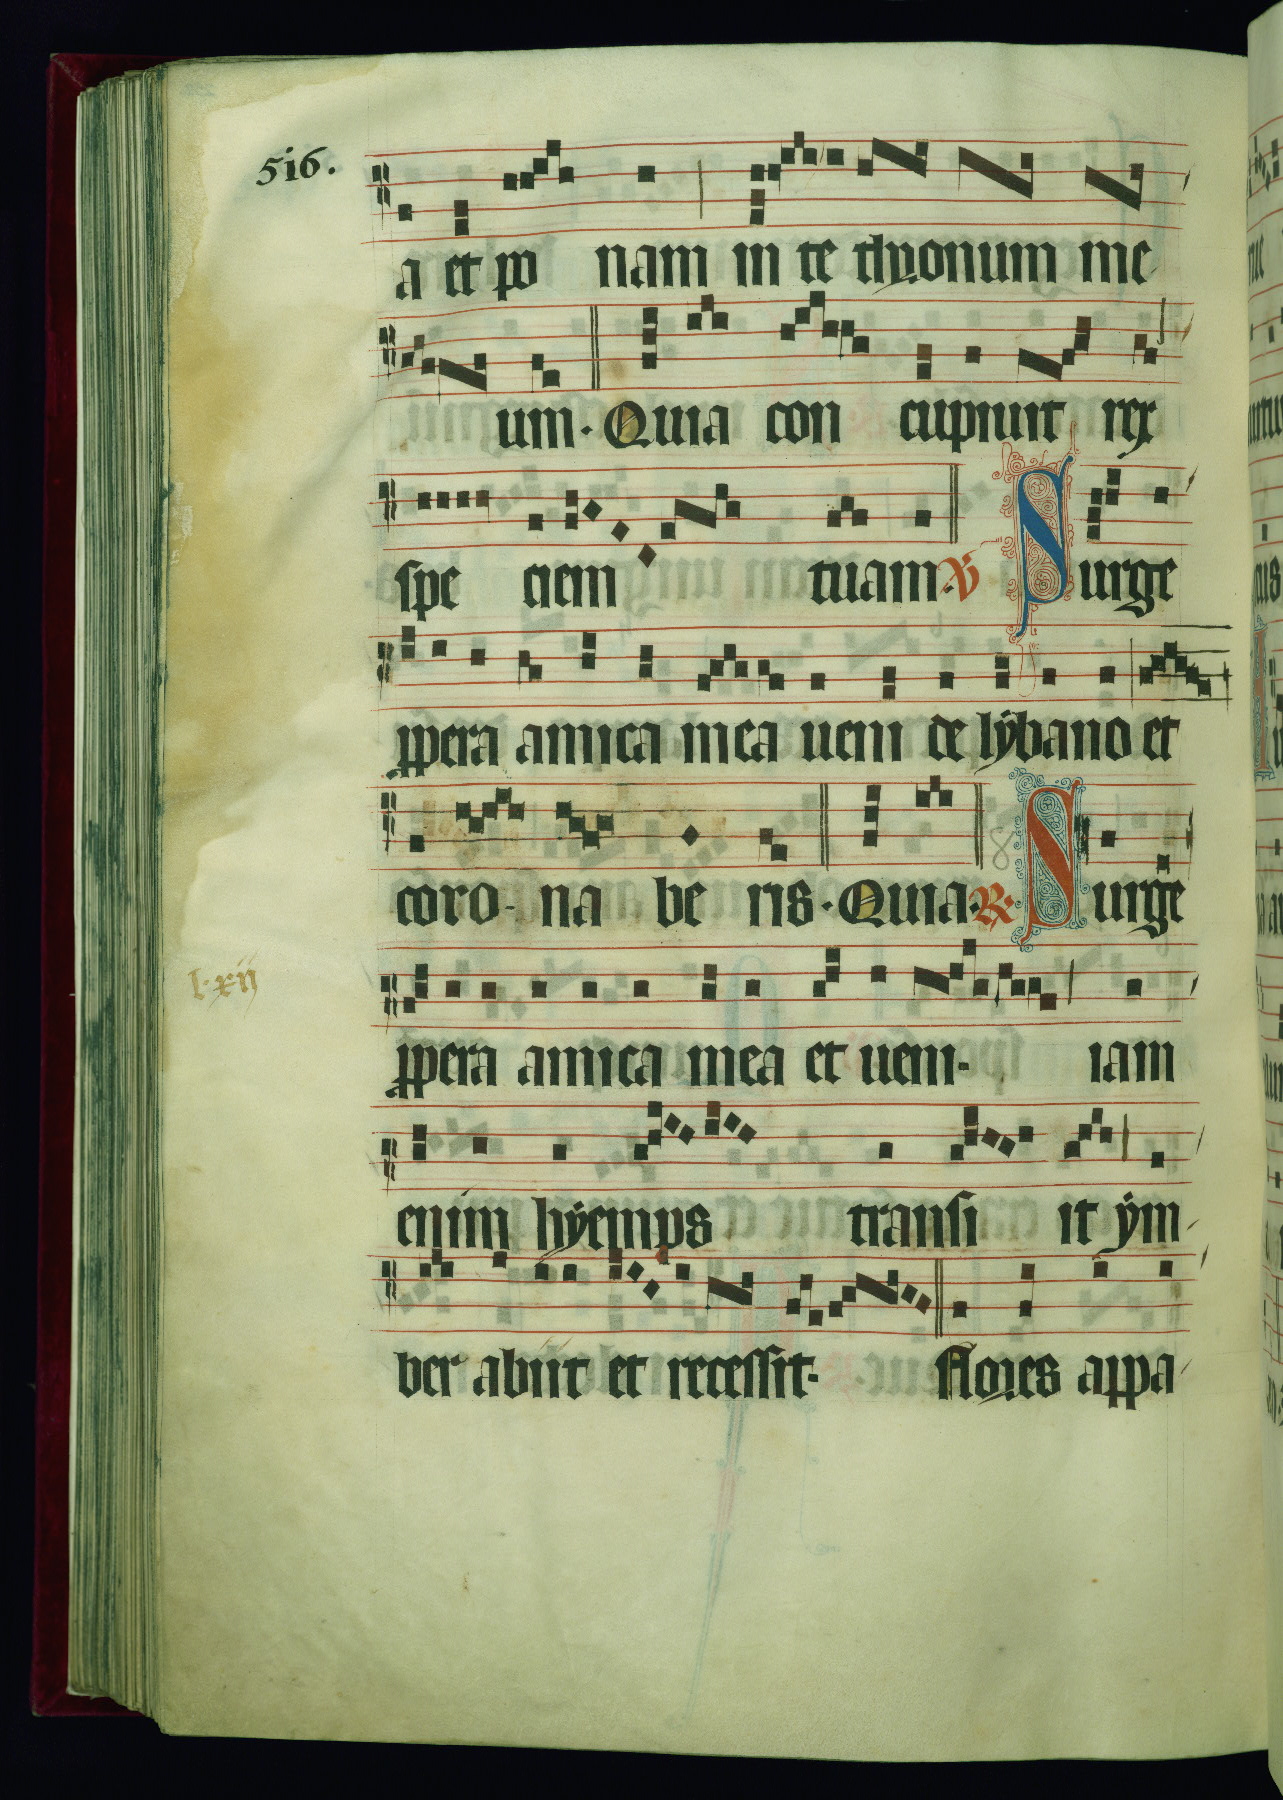 516.
a et po nam in te thronum me
um. Quia con cupiuit rex
spe ciem tuam. V Surge
ppera amica mea ueni de lybano et
coro- na be ris. Quia. R. Surge
ppera amica mea et ueni. iam
l. xij
enim hyemps transi it ym
ber abiit et recessit. flores appa